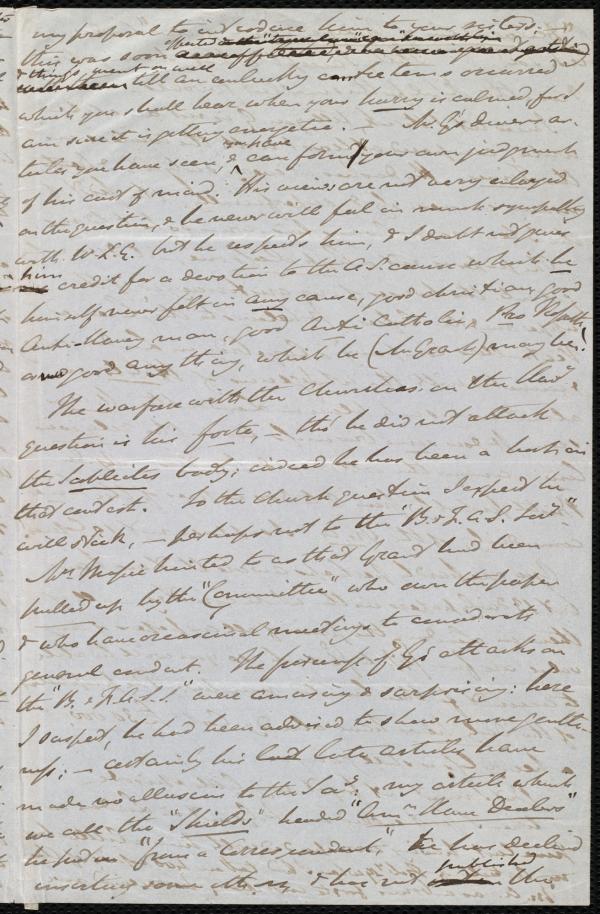 my proposal to introduce him to your sisters:
this was soon
& things went on well till an unlucky occurred
which you shall hear when your hurry is calmed, for I
am sure it is getting energetic. — Mr. G's diverse ar-
ticles you have seen, & you have can form your own judgment
of his cast of mind. His views are not very enlarged
on the question, & he never will feel in much sympathy
with W.L.G. but he respects him, & I doubt not gives
him credit for a devotion to the A.S. cause which he
himself never felt in any cause, good christian, good
Anti-Slavery man, good Anti Catholic,
good any thing, which he (Mr Grant) may be!
The warfare with the Churches on the Slavy.
question is his forte, — tho' he did not attack
the body; indeed he has been a
that contest. To the Church question I expect he
will stick, — perhaps not to the "B. & F. A. S. Soc."
Mrs Massie hinted to us that Grant had been
pulled up by the "Committee" who own the paper
& who have occasional meetings to consider its
general conduct. The of G's attacks on
the "B. & F. A. S. S." were amusing & surprising: here
I suspect, he had been advised to show more gentle-
ness; — certainly his last late articles have
made no allusion to the Socy: my article which
we call the "Shields" headed "Amn. Slave Dealers"
he put in "from a Correspondent," he has declined
inserting some others, & has not published